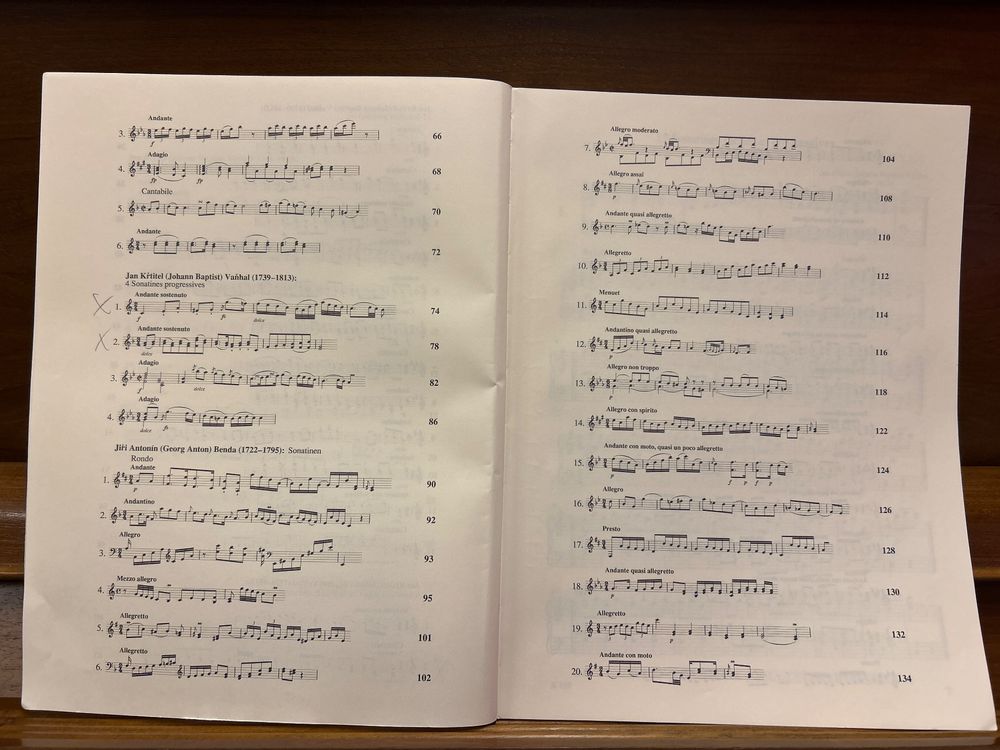 Andante
3. f 66
Adagio
4. fp fp 68
Cantabile
5. 70
Andante
6. 72
Jan Křtitel (Johann Baptist) Vaňhal (1739–1813):
4 Sonatines progressives
Andante sostenuto
X 1. f fz dolce 74
Andante sostenuto
X 2. dolce 78
Adagio
3. f dolce 82
Adagio
4. dolce fz 86
Jiří Antonín (Georg Anton) Benda (1722–1795): Sonatinen
Rondo
Andante
1. p 90
Andantino
2. 92
Allegro
3. 93
Mezzo allegro
4. 95
Allegretto
5. 101
Allegretto
6. 102
Allegro moderato
7. 104
Allegro assai
8. p 108
Andante quasi allegretto
9. 110
Allegretto
10. 112
Menuet
11. 114
Andantino quasi allegretto
12. p 116
Allegro non troppo
13. p 118
Allegro con spirito
14. 122
Andante con moto, quasi un poco allegretto
15. p f p 124
Allegro
16. 126
Presto
17. 128
Andante quasi allegretto
18. p 130
Allegretto
19. p 132
Andante con moto
20. 134